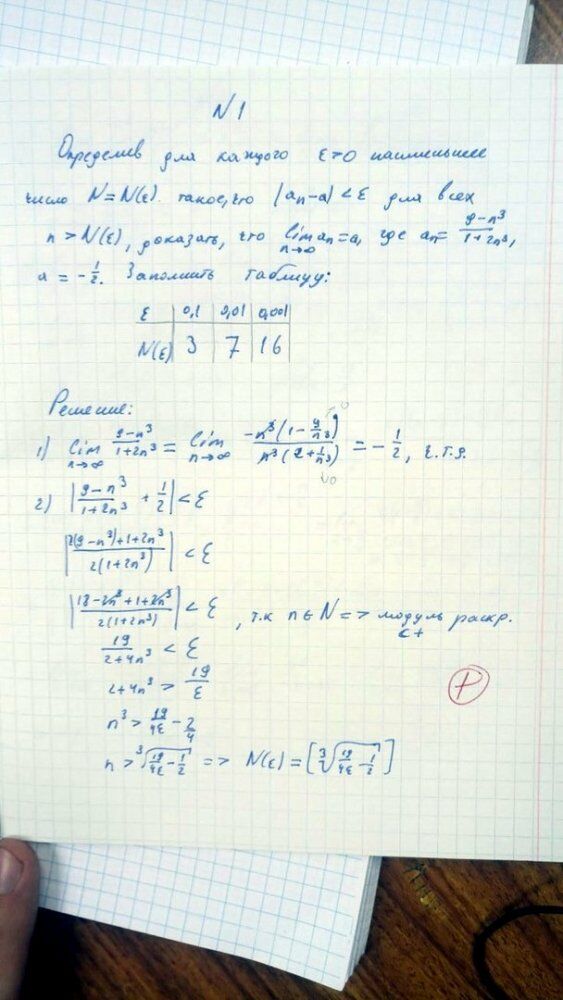 N 1
Определив для каждого ε>0 наименьшее
число N=N(ε) такое, что |aₙ-a|<ε для всех
n > N(ε), доказать, что lim aₙ=a, где aₙ= (9-n³)/(1+2n³),
n→∞
a = -1/2. Заполнить таблицу:
ε | 0,1 | 0,01 | 0,001
N(ε) | 3 | 7 | 16
Решение:
1) lim (9-n³)/(1+2n³) = lim (-n³(1-9/n³))/(n³(2+1/n³)) = -1/2, ч.т.д.
n→∞ n→∞
2) |(9-n³)/(1+2n³) + 1/2| < ε
|(2(9-n³)+1+2n³)/(2(1+2n³))| < ε
|(18-2n³+1+2n³)/(2(1+2n³))| < ε, т.к n∈N => модуль раскр.
с +
19/(2+4n³) < ε
2+4n³ > 19/ε
n³ > 19/4ε - 2/4
n > ∛(19/4ε - 1/2) => N(ε) = [∛(19/4ε - 1/2)]
+